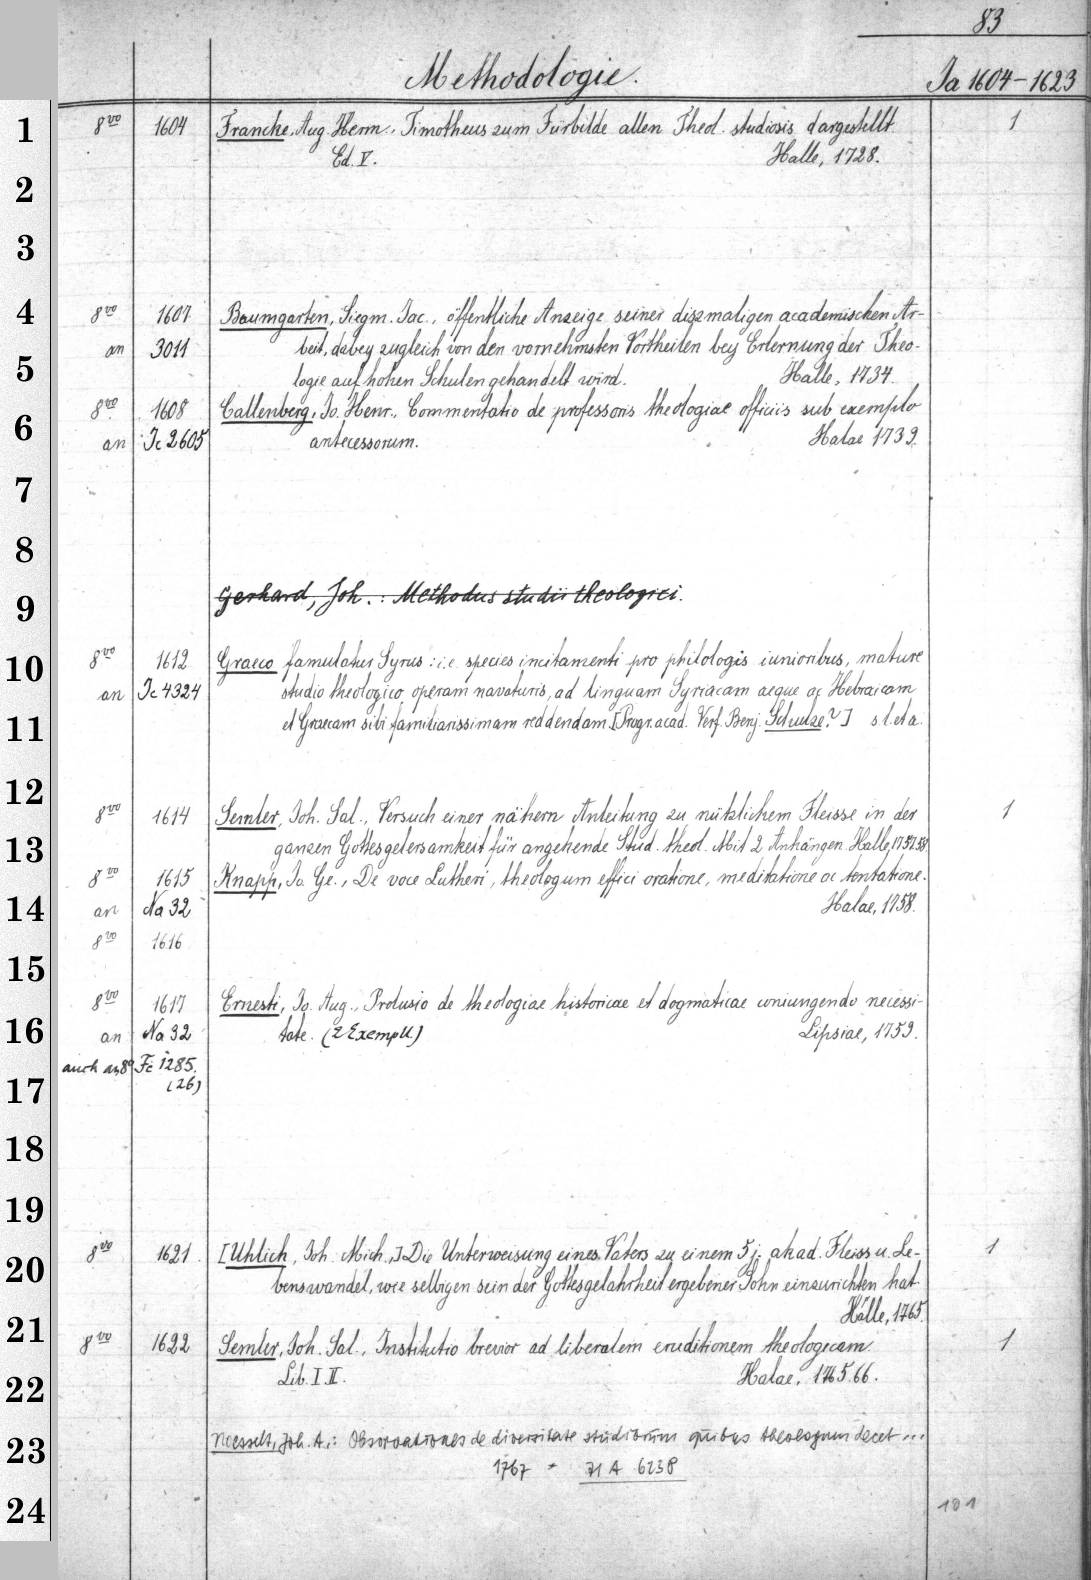 83
Methodologie. Ja 1604-1623
1 8vo 1604 Francke, Aug. Herm., Timotheus zum Fürbilde allen Theol. studiosis dargestellt 1
Ed. V. Halle, 1728.
2
3
4 8vo 1607 Baumgarten, Siegm. Jac., öffentliche Anzeige seiner dismaligen academischen Ar-
an 3011 beit, dabey zugleich von den vornehmsten Vortheilen bey Erlernung der Theo-
5 logie auf hohen Schulen gehandelt wird. Halle, 1734.
8vo 1608 Callenberg, Jo. Henr., Commentatio de professoris theologiae officiis sub exemplo
6 an Jc 2605 antecessorum. Halae 1739.
7
8
9 Gerhard, Joh.: Methodus studii theologici.
10 8vo 1612 Graeco famulatur Syrus: i.e. species incitamenti pro philologis iunioribus, mature
an Jc 4324 studio theologico operam navaturis, ad linguam Syriacam aeque ac Hebraicam
11 et Graecam sibi familiarissimam reddendam. [Progr. acad. Verf. Benj. Schulze?] s. l. et a.
12 8vo 1614 Semler, Joh. Sal., Versuch einer nähern Anleitung zu nützlichem Fleisse in der 1
13 ganzen Gottesgelersamkeit für angehende Stud. theol. Mit 2 Anhängen. Halle, 1757.58
8vo 1615 Knapp, Jo. Ge., De voce Lutheri, theologum effici oratione, meditatione ac tentatione.
14 an Na 32 Halae, 1758.
8vo 1616
15
8vo 1617 Ernesti, Jo. Aug., Prolusio de theologiae historicae et dogmaticae coniungendo necessi-
16 an Na 32 tate. (2 Exempll.) Lipsiae, 1759.
auch an 8° Fc 1285.
17 (26)
18
19
20 8vo 1621 [Uhlich, Joh. Mich.,] Die Unterweisung eines Vaters zu einem 5j. akad. Fleiss u. Le- 1
benswandel, wie selbigen sein der Gottesgelahrheit ergebener Sohn einzurichten hat.
21 Halle, 1765.
8vo 1622 Semler, Joh. Sal., Institutio brevior ad liberalem eruditionem theologicam. 1
22 Lib. I. II. Halae, 1765.66.
23 Noesselt, Joh. A.: Observationes de diversitate studiorum quibus theologum decet...
1767 = 71 A 6238
24 101